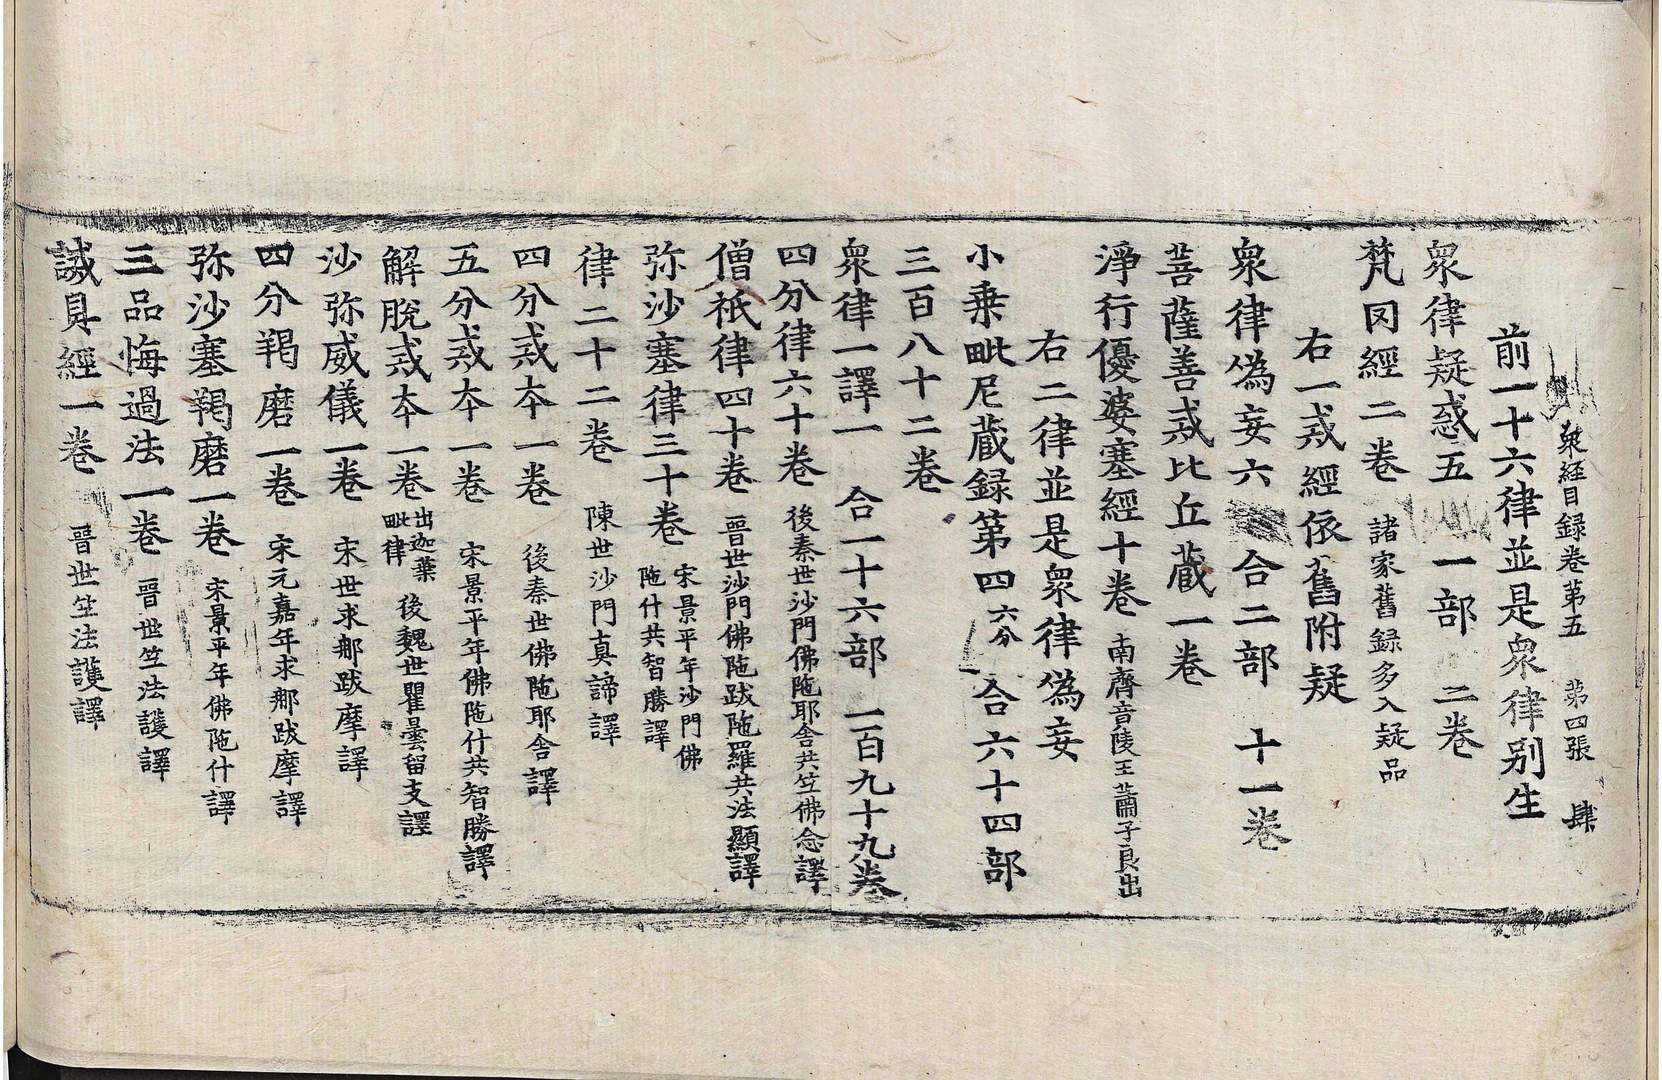 衆経目録卷第五　第四張　肆
前一十六律並是衆律别生
衆律疑惑五　一部　二卷
梵罔經二卷　諸家舊録多入疑品
右一戒經依舊附疑
衆律偽妄六　合二部　十一卷
菩薩善戒比丘蔵一卷
淨行優婆塞經十卷　南齊竟陵王蕭子良出
右二律並是衆律偽妄
小乗毗尼蔵録第四　六分　合六十四部
三百八十二卷
衆律一譯一　合一十六部　一百九十九卷
四分律六十卷　後秦世沙門佛陁耶舎共竺佛念譯
僧祇律四十卷　晋世沙門佛陁跋陁羅共法顯譯
弥沙塞律三十卷　宋景平年沙門佛陁什共智勝譯
律二十二卷　陳世沙門真諦譯
四分戒夲一卷　後秦世佛陁耶舎譯
五分戒夲一卷　宋景平年佛陁什共智勝譯
解脫戒夲一卷　出迦葉毗律　後魏世瞿曇留支譯
沙弥威儀一卷　宋世求那跋摩譯
四分羯磨一卷　宋元嘉年求那跋摩譯
弥沙塞羯磨一卷　宋景平年佛陁什譯
三品悔過法一卷　晋世竺法護譯
誡具經一卷　晋世竺法護譯